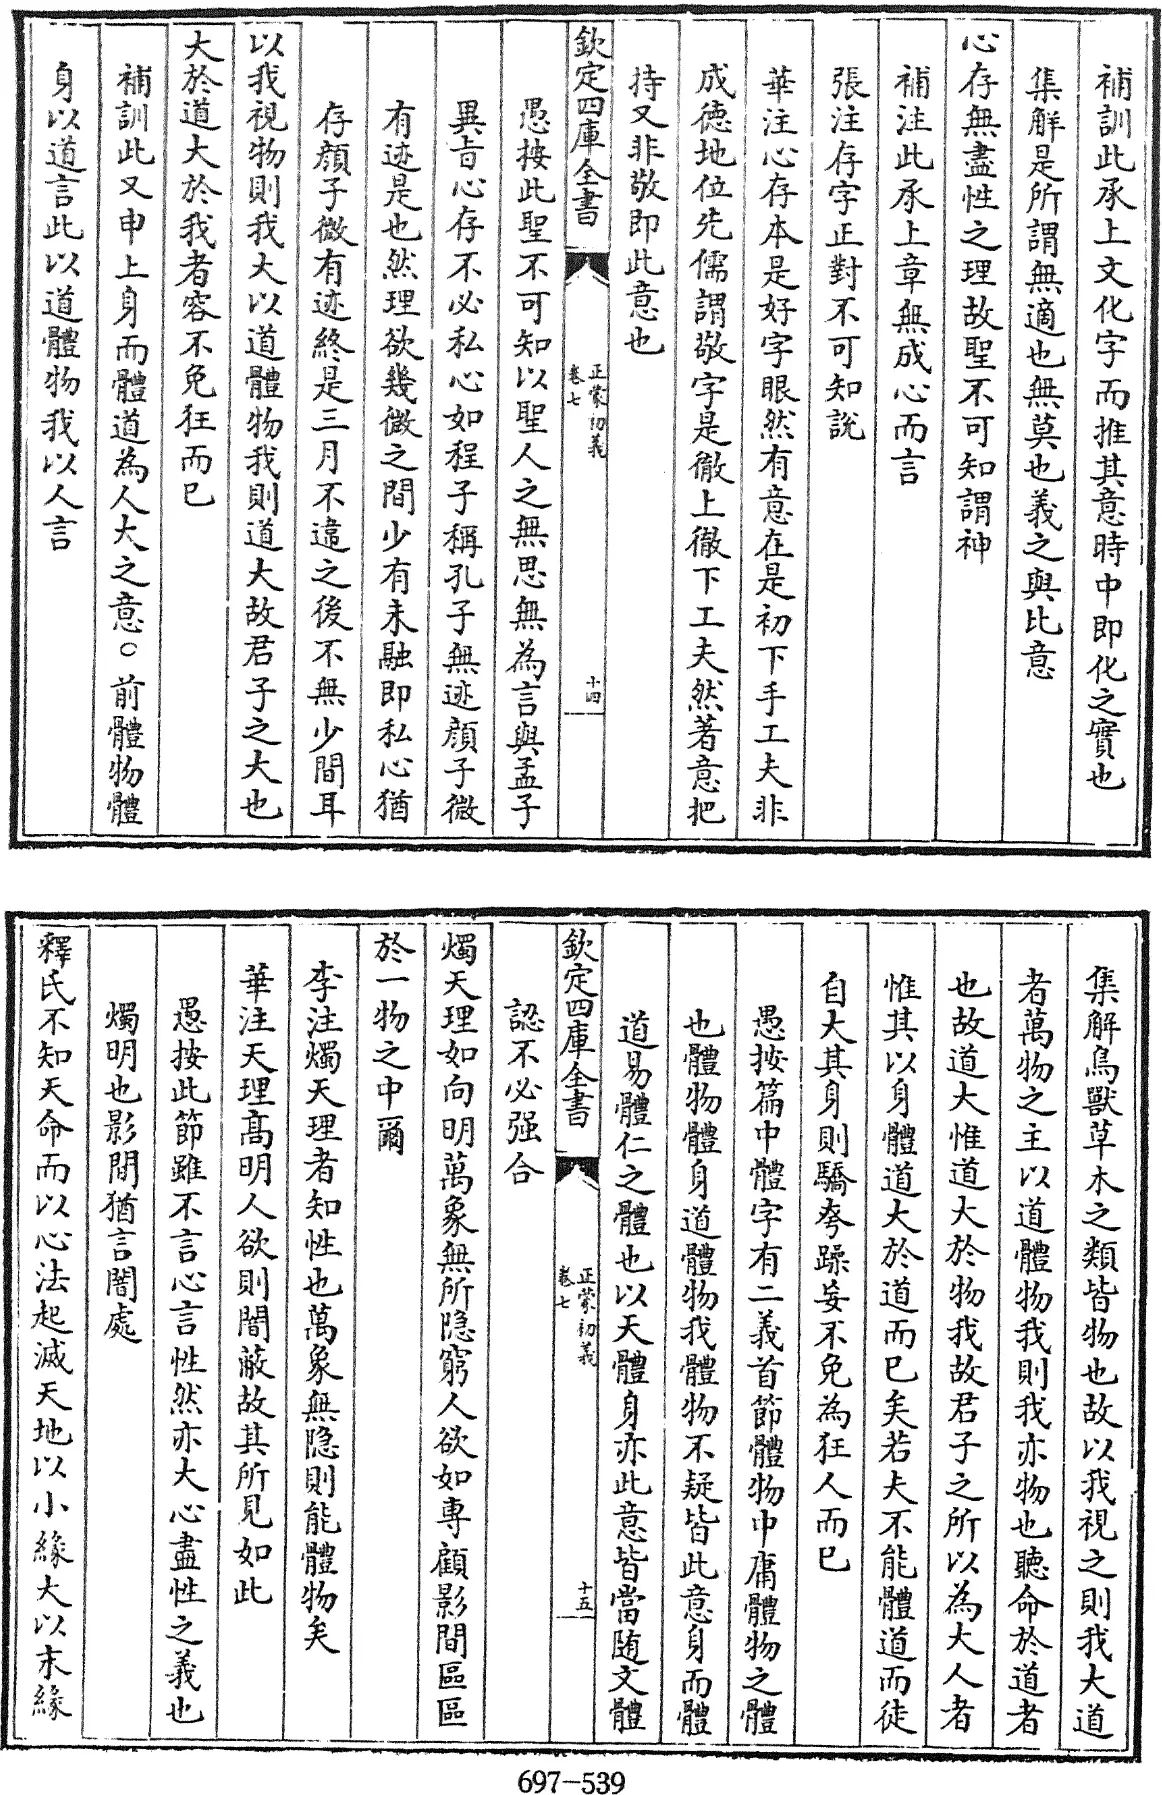 補訓此承上文化字而推其意時中即化之實也
集解是所謂無適也無莫也義之與比意
心存無盡性之理故聖不可知謂神
補注此承上章無成心而言
張注存字正對不可知說
華注心存本是好字眼然有意在是初下手工夫非
成德地位先儒謂敬字是徹上徹下工夫然著意把
持又非敬即此意也
欽定四庫全書
正蒙初義
卷七
十四
愚按此聖不可知以聖人之無思無為言與孟子
異旨心存不必私心如程子稱孔子無迹顔子微
有迹是也然理欲幾微之間少有未融即私心猶
存顔子微有迹終是三月不違之後不無少間耳
以我視物則我大以道體物我則道大故君子之大也
大於道大於我者容不免狂而已
補訓此又申上身而體道為人大之意○前體物體
身以道言此以道體物我以人言
集解鳥獸草木之類皆物也故以我視之則我大道
者萬物之主以道體物我則我亦物也聽命於道者
也故道大惟道大於物我故君子之所以為大人者
惟其以身體道大於道而已矣若夫不能體道而徒
自大其身則驕夸躁妄不免為狂人而已
愚按篇中體字有二義首節體物中庸體物之體
也體物體身道體物我體物不疑皆此意身而體
道易體仁之體也以天體身亦此意皆當随文體
欽定四庫全書
正蒙初義
卷七
十五
認不必强合
燭天理如向明萬象無所隐窮人欲如專顧影間區區
於一物之中爾
李注燭天理者知性也萬象無隐則能體物矣
華注天理高明人欲則闇蔽故其所見如此
愚按此節雖不言心言性然亦大心盡性之義也
燭明也影間猶言闇處
釋氏不知天命而以心法起滅天地以小緣大以末緣
697-539